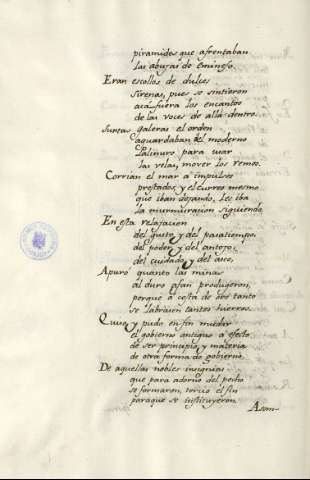 piramides que afrentaban
las abujas de Eminefo.
Eran escollos de dulces
Sirenas, pues se sintieron
acá fuera los encantos
de las voces de allá dentro.
Juntas galeras el orden
aguardaban del moderno
Palinuro para usar
las velas, mover los remos.
Corrian el mar a impulsos
prestados, y el curso mesmo
que iban dejando, les iba
la murmuracion siguiendo
En esta relajacion
del gusto y del pasatiempo,
del poder, y del antojo,
del cuidado, y del
Apuró quanto las minas
al duro afan produgeron,
porque a costa de oro tanto
se labrasen tantos hierros.
Quiso, y pudo en fin mudar
el gobierno antiguo a efecto
de ser principio, y materia
de otra forma de gobierno.
De aquellas nobles insignias
que para adorno del pecho
se formaron, torció el fin
para que se instituyeron.
Asom-